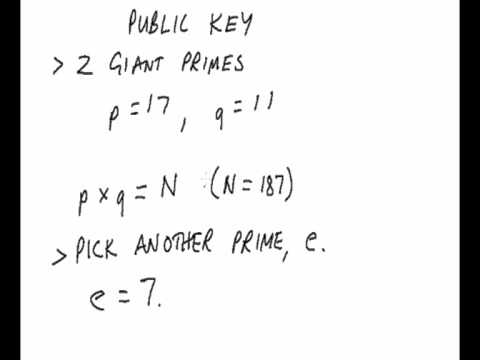 PUBLIC KEY
> 2 GIANT PRIMES
p = 17, q = 11
p × q = N (N = 187)
> PICK ANOTHER PRIME, e.
e = 7.